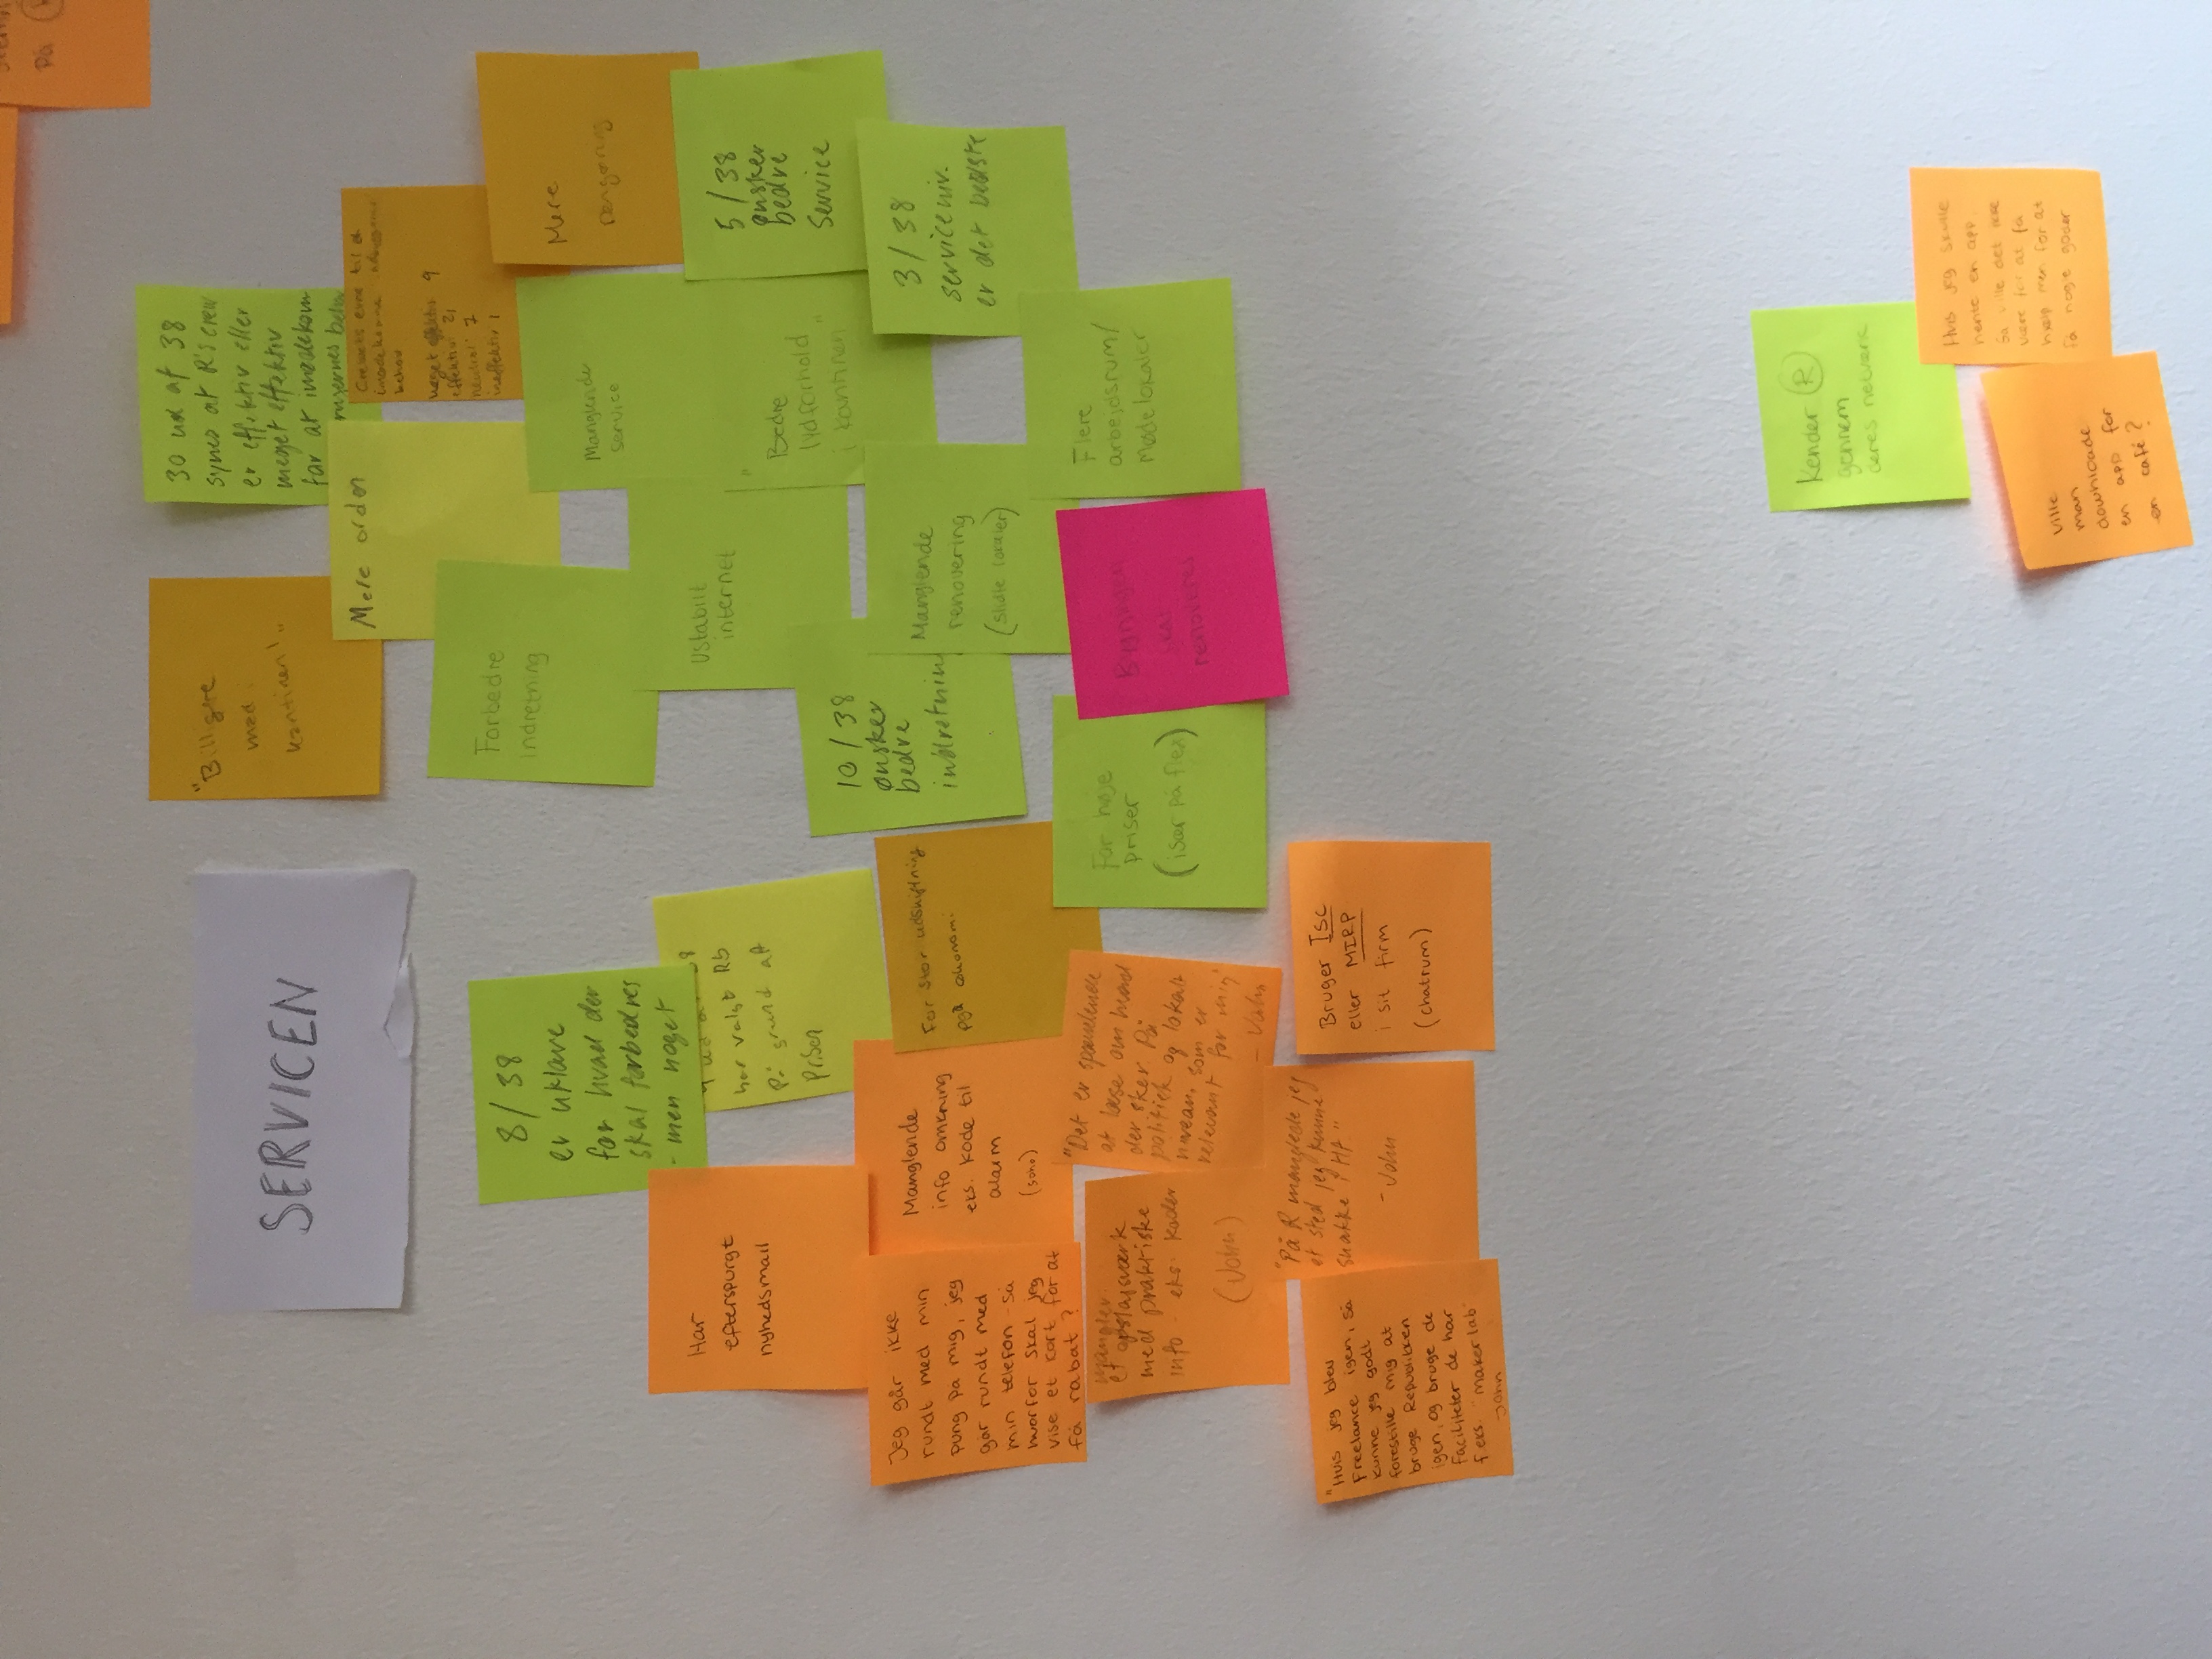 på
SERVICEN
"Billigere
mad i
kantinen!"
30 ud af 38
synes at R's crew
er effektiv eller
meget effektiv
for at imødekom
behov
Mere orden
Crewets evne til at
imødekomme
behov
meget effektiv 9
effektiv 21
neutral 7
ineffektiv 1
Forbedre
indretning
Manglende
service
Mere
rengøring
8/38
er uklare
for hvad der
skal forbedres
- men noget
Har
efterspurgt
nyhedsmail
har valgt Rb
På grund af
Prisen
Ustabilt
internet
"Bedre
lydforhold
i kantinen"
5/38
ønsker
bedre
service
10/38
ønsker
bedre
indretnin
Manglende
renovering
(slidte lokaler)
3/38
serviceniv.
er det bedste
Jeg går ikke
rundt med min
pung på mig, jeg
går rundt med
min telefon - så
hvorfor skal jeg
vise et kort for at
få rabat?
Manglende
info omkring
eks. kode til
alarm
(soho)
For stor udskiftning
pga økonomi
mangler
et opslagsværk
med praktiske
info - eks. koder
(John)
"Det er spændende
at læse om hvad
der sker på
politisk og lokalt
niveau, som er
relevant for min"
- John
For høje
priser
(især på flex)
Bygningen
skal
renoveres
Flere
arbejdsrum/
Mødelokaler
"Hvis jeg blev
Freelance igen, så
kunne jeg godt
forestille mig at
bruge Republikken
igen, og bruge de
Faciliteter de har
f.eks. "makerlab"
- John
"På R manglede jeg
et sted jeg kunne
snakke i tlf."
- John
Bruger Isc
eller MIRP
i sit firm
(chatrum)
Kender R
gennem
deres netværk
Hvis jeg skulle
hente en app,
så ville det ikke
være for at få
hjælp men for at
få nogle goder
Ville
man
downloade
en app for
en café?